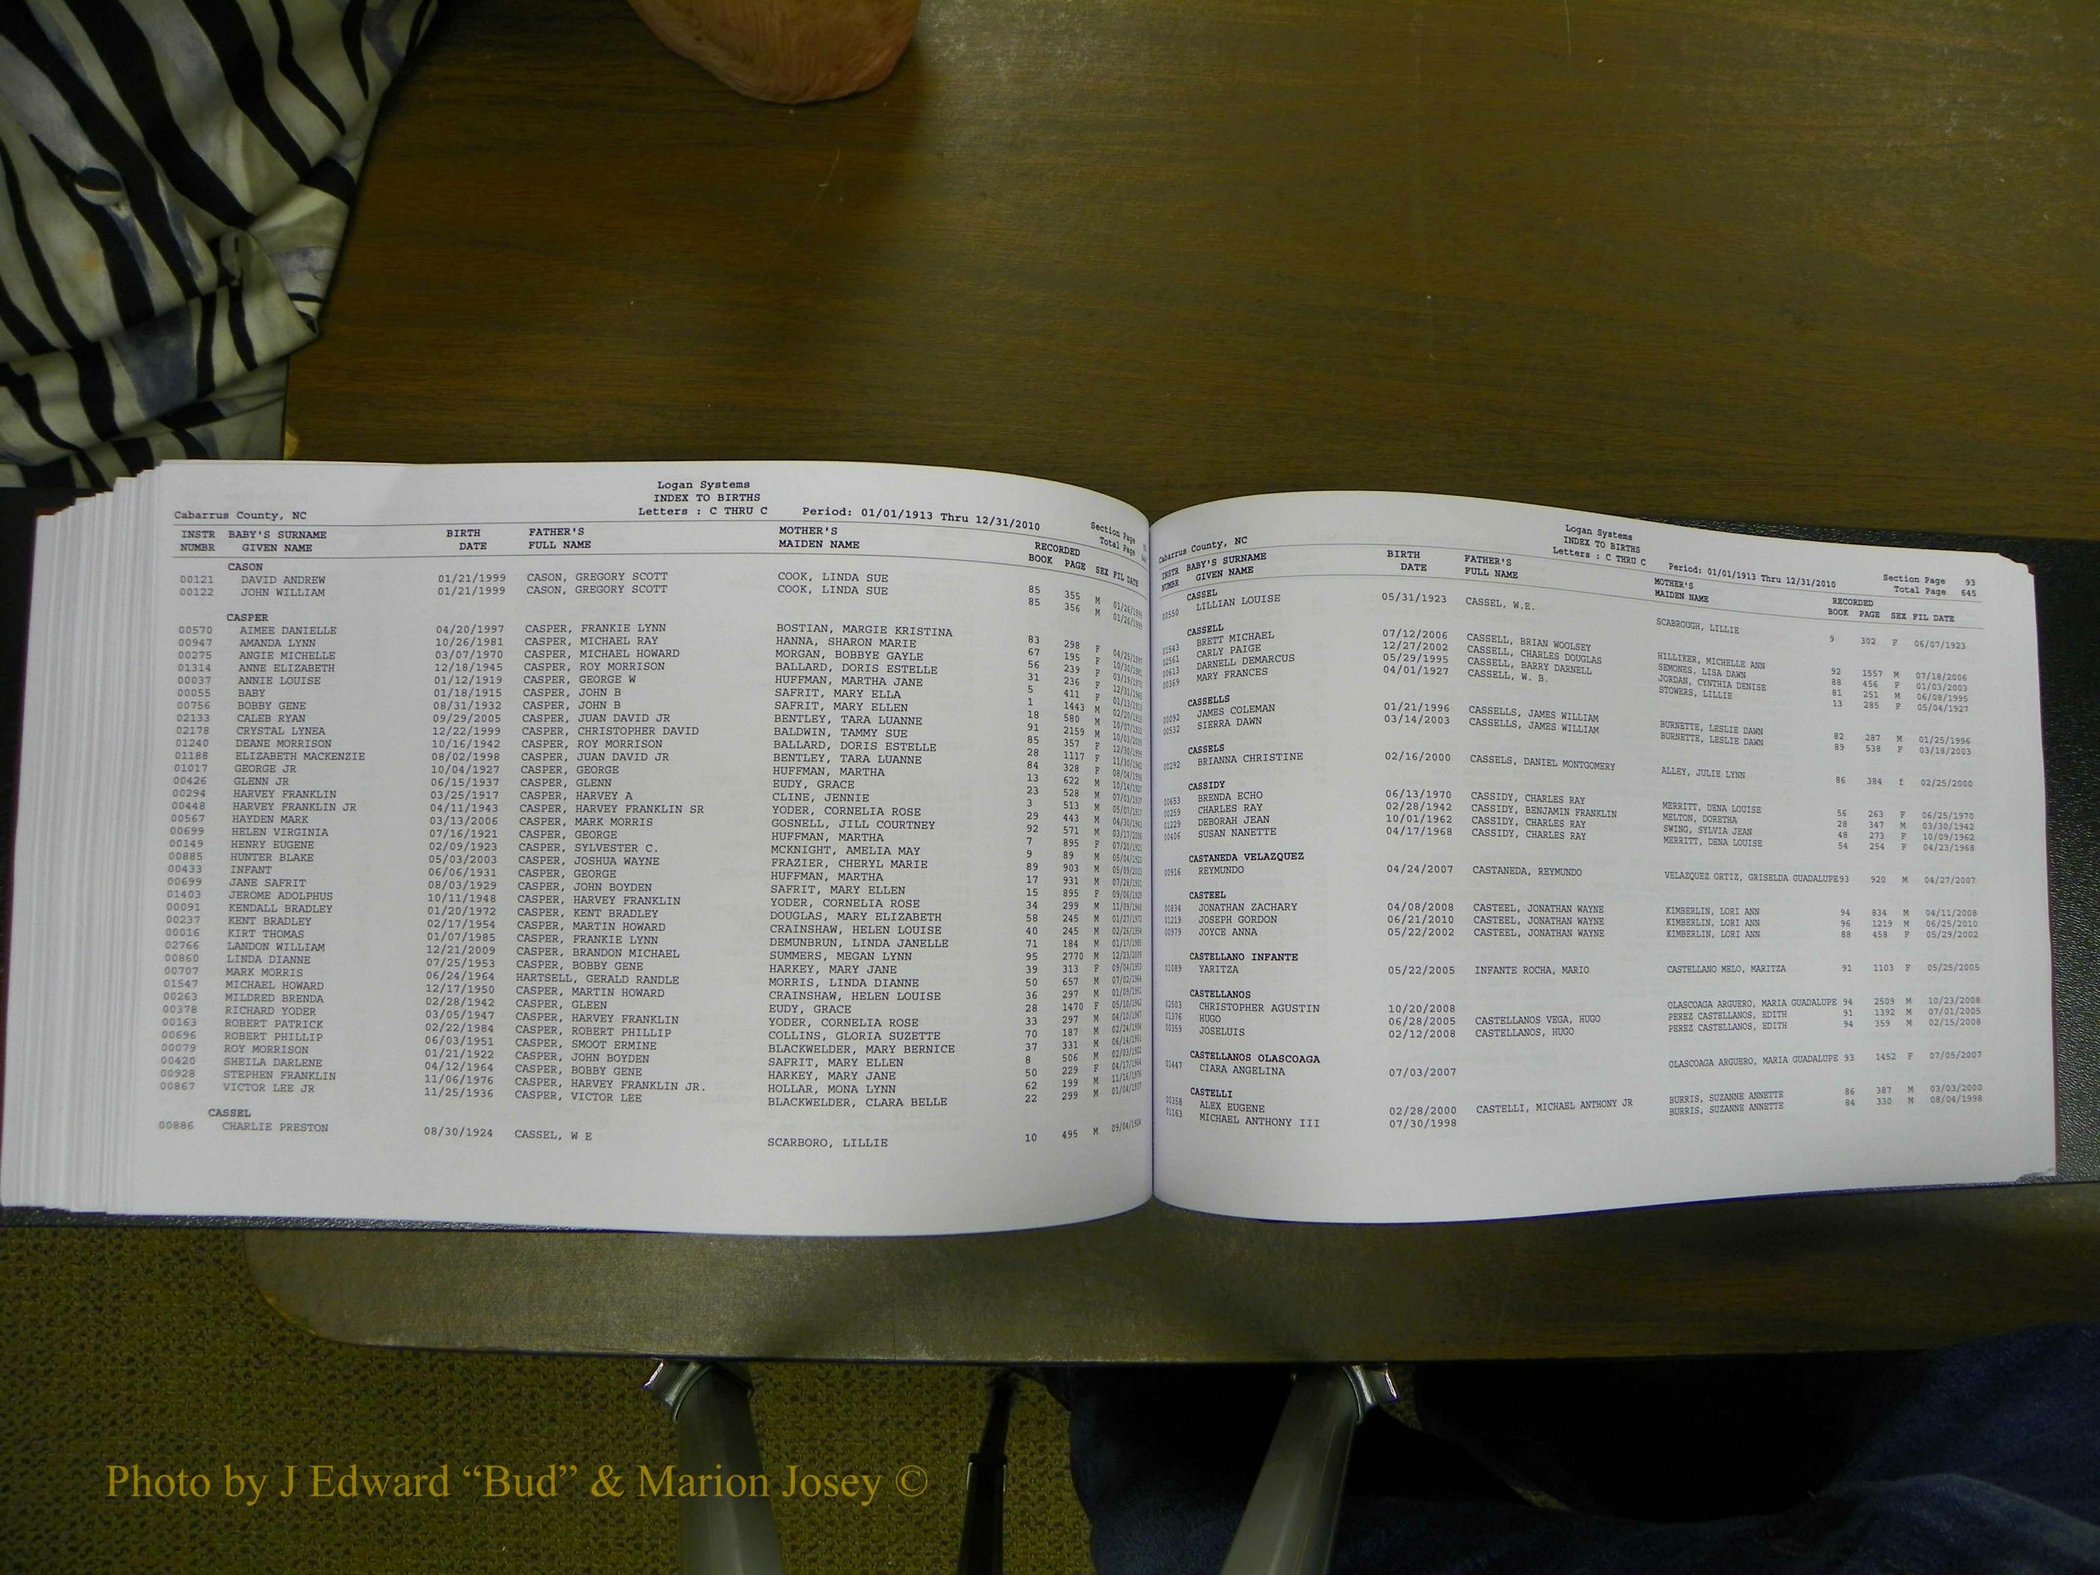 Logan Systems
INDEX TO BIRTHS
Cabarrus County, NC Letters : C THRU C Period: 01/01/1913 Thru 12/31/2010 Section Page
Total Page
INSTR BABY'S SURNAME BIRTH FATHER'S MOTHER'S RECORDED
NUMBR GIVEN NAME DATE FULL NAME MAIDEN NAME BOOK PAGE SEX FIL DATE
CASON
00121 DAVID ANDREW 01/21/1999 CASON, GREGORY SCOTT COOK, LINDA SUE 85 355 M 01/26/1999
00122 JOHN WILLIAM 01/21/1999 CASON, GREGORY SCOTT COOK, LINDA SUE 85 356 M 01/26/1999
CASPER
00570 AIMEE DANIELLE 04/20/1997 CASPER, FRANKIE LYNN BOSTIAN, MARGIE KRISTINA 83 298 F 04/25/1997
00947 AMANDA LYNN 10/26/1981 CASPER, MICHAEL RAY HANNA, SHARON MARIE 67 239 F 10/30/1981
00275 ANGIE MICHELLE 03/07/1970 CASPER, MICHAEL HOWARD MORGAN, BOBBYE GAYLE 56 195 F
01314 ANNE ELIZABETH 12/18/1945 CASPER, ROY MORRISON BALLARD, DORIS ESTELLE 31 236 F
00037 ANNIE LOUISE 01/12/1919 CASPER, GEORGE W HUFFMAN, MARTHA JANE 5 411 F
00055 BABY 01/18/1915 CASPER, JOHN B SAFRIT, MARY ELLA 1 1443 M
00756 BOBBY GENE 08/31/1932 CASPER, JOHN B SAFRIT, MARY ELLEN 18 580 M
02133 CALEB RYAN 09/29/2005 CASPER, JUAN DAVID JR BENTLEY, TARA LUANNE 91 2159 M
02178 CRYSTAL LYNEA 12/22/1999 CASPER, CHRISTOPHER DAVID BALDWIN, TAMMY SUE 85 357 F
01240 DEANE MORRISON 10/16/1942 CASPER, ROY MORRISON BALLARD, DORIS ESTELLE 28 1117
01188 ELIZABETH MACKENZIE 08/02/1998 CASPER, JUAN DAVID JR BENTLEY, TARA LUANNE 84 328 F
01017 GEORGE JR 10/04/1927 CASPER, GEORGE HUFFMAN, MARTHA 13 622 M
00426 GLENN JR 06/15/1937 CASPER, GLENN EUDY, GRACE 23 528 M
00294 HARVEY FRANKLIN 03/25/1917 CASPER, HARVEY A CLINE, JENNIE 3 513 M
00448 HARVEY FRANKLIN JR 04/11/1943 CASPER, HARVEY FRANKLIN SR YODER, CORNELIA ROSE 29 443 M
00567 HAYDEN MARK 03/13/2006 CASPER, MARK MORRIS GOSNELL, JILL COURTNEY 92 571 M
00699 HELEN VIRGINIA 07/16/1921 CASPER, GEORGE HUFFMAN, MARTHA 7 895 F
00149 HENRY EUGENE 02/09/1923 CASPER, SYLVESTER C. MCKNIGHT, AMELIA MAY 9 89 M
00885 HUNTER BLAKE 05/03/2003 CASPER, JOSHUA WAYNE FRAZIER, CHERYL MARIE 89 903 M
00433 INFANT 06/06/1931 CASPER, GEORGE HUFFMAN, MARTHA 17 931 M
00699 JANE SAFRIT 08/03/1929 CASPER, JOHN BOYDEN SAFRIT, MARY ELLEN 15 895 F
01403 JEROME ADOLPHUS 10/11/1948 CASPER, HARVEY FRANKLIN YODER, CORNELIA ROSE 34 299 M
00091 KENDALL BRADLEY 01/20/1972 CASPER, KENT BRADLEY DOUGLAS, MARY ELIZABETH 58 245 M
00237 KENT BRADLEY 02/17/1954 CASPER, MARTIN HOWARD CRAINSHAW, HELEN LOUISE 40 245 M
00016 KIRT THOMAS 01/07/1985 CASPER, FRANKIE LYNN DEMUNBRUN, LINDA JANELLE 71 184 M
02766 LANDON WILLIAM 12/21/2009 CASPER, BRANDON MICHAEL SUMMERS, MEGAN LYNN 95 2770 M
00860 LINDA DIANNE 07/25/1953 CASPER, BOBBY GENE HARKEY, MARY JANE 39 313 F
00707 MARK MORRIS 06/24/1964 HARTSELL, GERALD RANDLE MORRIS, LINDA DIANNE 50 657 M
01547 MICHAEL HOWARD 12/17/1950 CASPER, MARTIN HOWARD CRAINSHAW, HELEN LOUISE 36 297 M
00263 MILDRED BRENDA 02/28/1942 CASPER, GLEEN EUDY, GRACE 28 1470 F
00378 RICHARD YODER 03/05/1947 CASPER, HARVEY FRANKLIN YODER, CORNELIA ROSE 33 297 M
00163 ROBERT PATRICK 02/22/1984 CASPER, ROBERT PHILLIP COLLINS, GLORIA SUZETTE 70 187 M
00696 ROBERT PHILLIP 06/03/1951 CASPER, SMOOT ERMINE BLACKWELDER, MARY BERNICE 37 331 M
00079 ROY MORRISON 01/21/1922 CASPER, JOHN BOYDEN SAFRIT, MARY ELLEN 8 506 M
00420 SHEILA DARLENE 04/12/1964 CASPER, BOBBY GENE HARKEY, MARY JANE 50 229 F
00928 STEPHEN FRANKLIN 11/06/1976 CASPER, HARVEY FRANKLIN JR. HOLLAR, MONA LYNN 62 199 M
00867 VICTOR LEE JR 11/25/1936 CASPER, VICTOR LEE BLACKWELDER, CLARA BELLE 22 299 M
CASSEL
00886 CHARLIE PRESTON 08/30/1924 CASSEL, W E SCARBORO, LILLIE 10 495 M 09/04/1924
Logan Systems
INDEX TO BIRTHS
Cabarrus County, NC Letters : C THRU C Period: 01/01/1913 Thru 12/31/2010 Section Page 93
Total Page 645
INSTR BABY'S SURNAME BIRTH FATHER'S MOTHER'S RECORDED
NUMBR GIVEN NAME DATE FULL NAME MAIDEN NAME BOOK PAGE SEX FIL DATE
CASSEL
00550 LILLIAN LOUISE 05/31/1923 CASSEL, W.E. SCABROUGH, LILLIE 9 302 F 06/07/1923
CASSELL
01543 BRETT MICHAEL 07/12/2006 CASSELL, BRIAN WOOLSEY HILLIKER, MICHELLE ANN 92 1557 M 07/18/2006
02561 CARLY PAIGE 12/27/2002 CASSELL, CHARLES DOUGLAS SEMONES, LISA DAWN 88 456 F 01/03/2003
00613 DARNELL DEMARCUS 05/29/1995 CASSELL, BARRY DARNELL JORDAN, CYNTHIA DENISE 81 251 M 06/08/1995
00369 MARY FRANCES 04/01/1927 CASSELL, W. B. STOWERS, LILLIE 13 285 F 05/04/1927
CASSELLS
00092 JAMES COLEMAN 01/21/1996 CASSELLS, JAMES WILLIAM BURNETTE, LESLIE DAWN 82 287 M 01/25/1996
00532 SIERRA DAWN 03/14/2003 CASSELLS, JAMES WILLIAM BURNETTE, LESLIE DAWN 89 538 F 03/18/2003
CASSELS
00292 BRIANNA CHRISTINE 02/16/2000 CASSELS, DANIEL MONTGOMERY ALLEY, JULIE LYNN 86 384 f 02/25/2000
CASSIDY
00653 BRENDA ECHO 06/13/1970 CASSIDY, CHARLES RAY MERRITT, DENA LOUISE 56 263 F 06/25/1970
00259 CHARLES RAY 02/28/1942 CASSIDY, BENJAMIN FRANKLIN MELTON, DORETHA 28 347 M 03/30/1942
01229 DEBORAH JEAN 10/01/1962 CASSIDY, CHARLES RAY SWING, SYLVIA JEAN 48 273 F 10/09/1962
00406 SUSAN NANETTE 04/17/1968 CASSIDY, CHARLES RAY MERRITT, DENA LOUISE 54 254 F 04/23/1968
CASTANEDA VELAZQUEZ
00916 REYMUNDO 04/24/2007 CASTANEDA, REYMUNDO VELAZQUEZ ORTIZ, GRISELDA GUADALUPE93 920 M 04/27/2007
CASTEEL
00834 JONATHAN ZACHARY 04/08/2008 CASTEEL, JONATHAN WAYNE KIMBERLIN, LORI ANN 94 834 M 04/11/2008
01219 JOSEPH GORDON 06/21/2010 CASTEEL, JONATHAN WAYNE KIMBERLIN, LORI ANN 96 1219 M 06/25/2010
00979 JOYCE ANNA 05/22/2002 CASTEEL, JONATHAN WAYNE KIMBERLIN, LORI ANN 88 458 F 05/29/2002
CASTELLANO INFANTE
01089 YARITZA 05/22/2005 INFANTE ROCHA, MARIO CASTELLANO MELO, MARITZA 91 1103 F 05/25/2005
CASTELLANOS
02503 CHRISTOPHER AGUSTIN 10/20/2008 OLASCOAGA ARGUERO, MARIA GUADALUPE 94 2509 M 10/23/2008
01376 HUGO 06/28/2005 CASTELLANOS VEGA, HUGO PEREZ CASTELLANOS, EDITH 91 1392 M 07/01/2005
00359 JOSELUIS 02/12/2008 CASTELLANOS, HUGO PEREZ CASTELLANOS, EDITH 94 359 M 02/15/2008
CASTELLANOS OLASCOAGA
01447 CIARA ANGELINA 07/03/2007 OLASCOAGA ARGUERO, MARIA GUADALUPE 93 1452 F 07/05/2007
CASTELLI
00358 ALEX EUGENE 02/28/2000 CASTELLI, MICHAEL ANTHONY JR BURRIS, SUZANNE ANNETTE 86 387 M 03/03/2000
01163 MICHAEL ANTHONY III 07/30/1998 BURRIS, SUZANNE ANNETTE 84 330 M 08/04/1998
Photo by J Edward “Bud” & Marion Josey ©